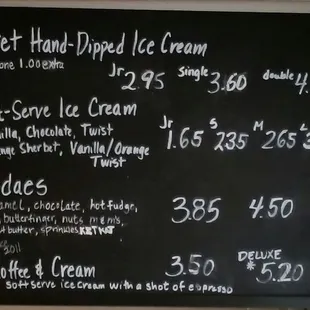 et Hand-Dipped Ice Cream
one 1.00 extra
Jr 2.95 Single 3.60 double 4.
-Serve Ice Cream
illa, Chocolate, Twist
nge Sherbet, Vanilla/Orange
Twist
Jr 1.65 S 235 M 265 L 3
daes
amel, chocolate, hot fudge,
butterfinger, nuts m&m's,
t butter, sprinkles
3.85 4.50
2011
offee & Cream 3.50 DELUXE 5.20
soft serve ice cream with a shot of espresso